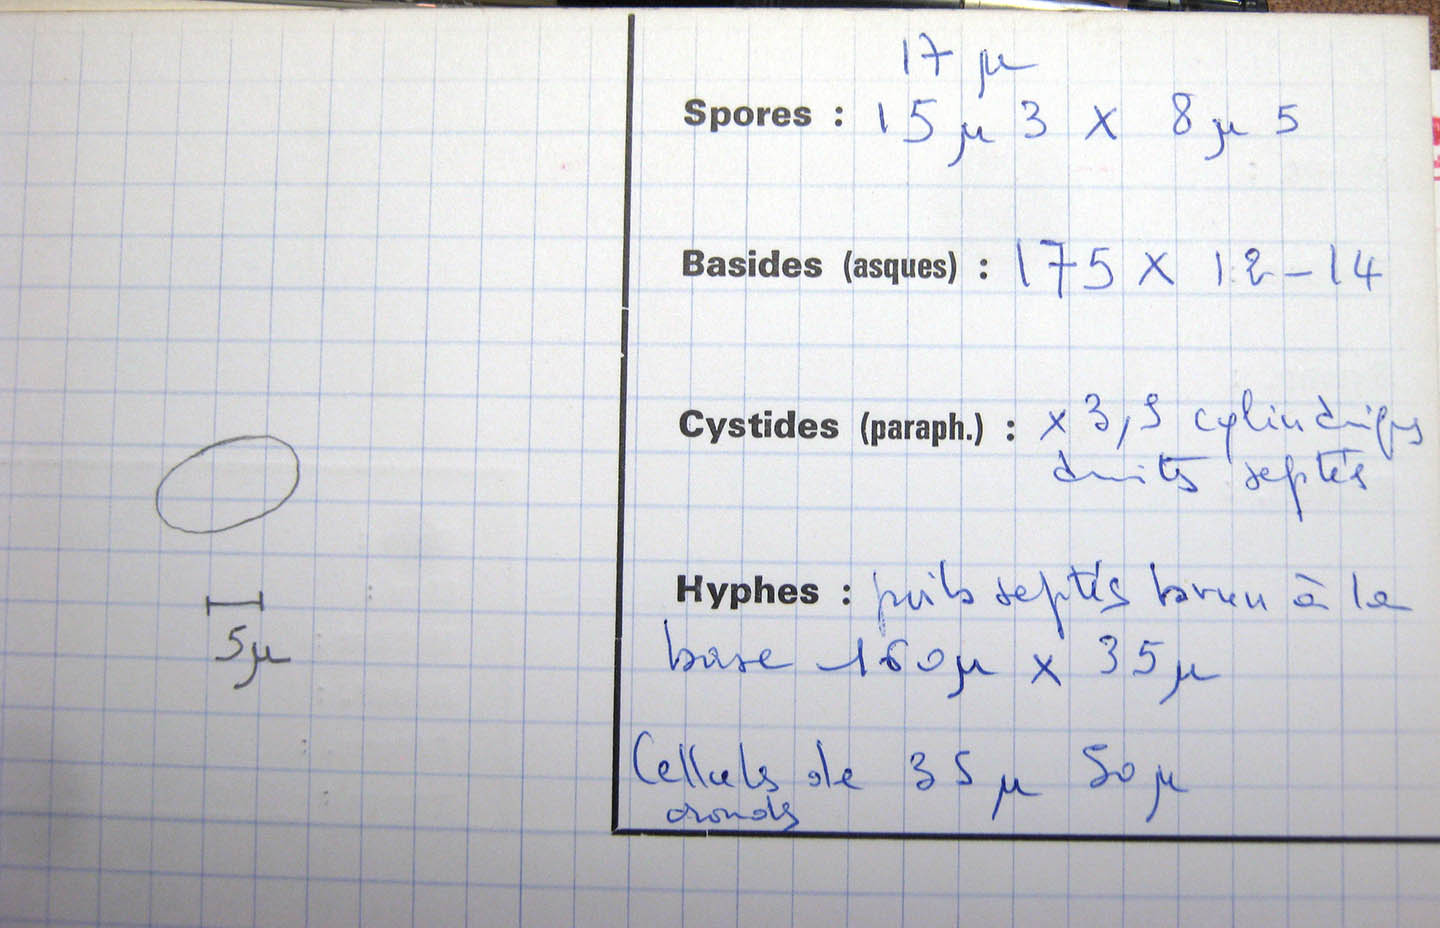 17 µ
Spores : 15 µ 3 x 8 µ 5
Basides (asques) : 175 x 12-14
Cystides (paraph.) : x 3,5 cylindriques
droits septés
5µ
Hyphes : poils septés brun à la
base 160µ x 35µ
Cellules de 35µ 50µ